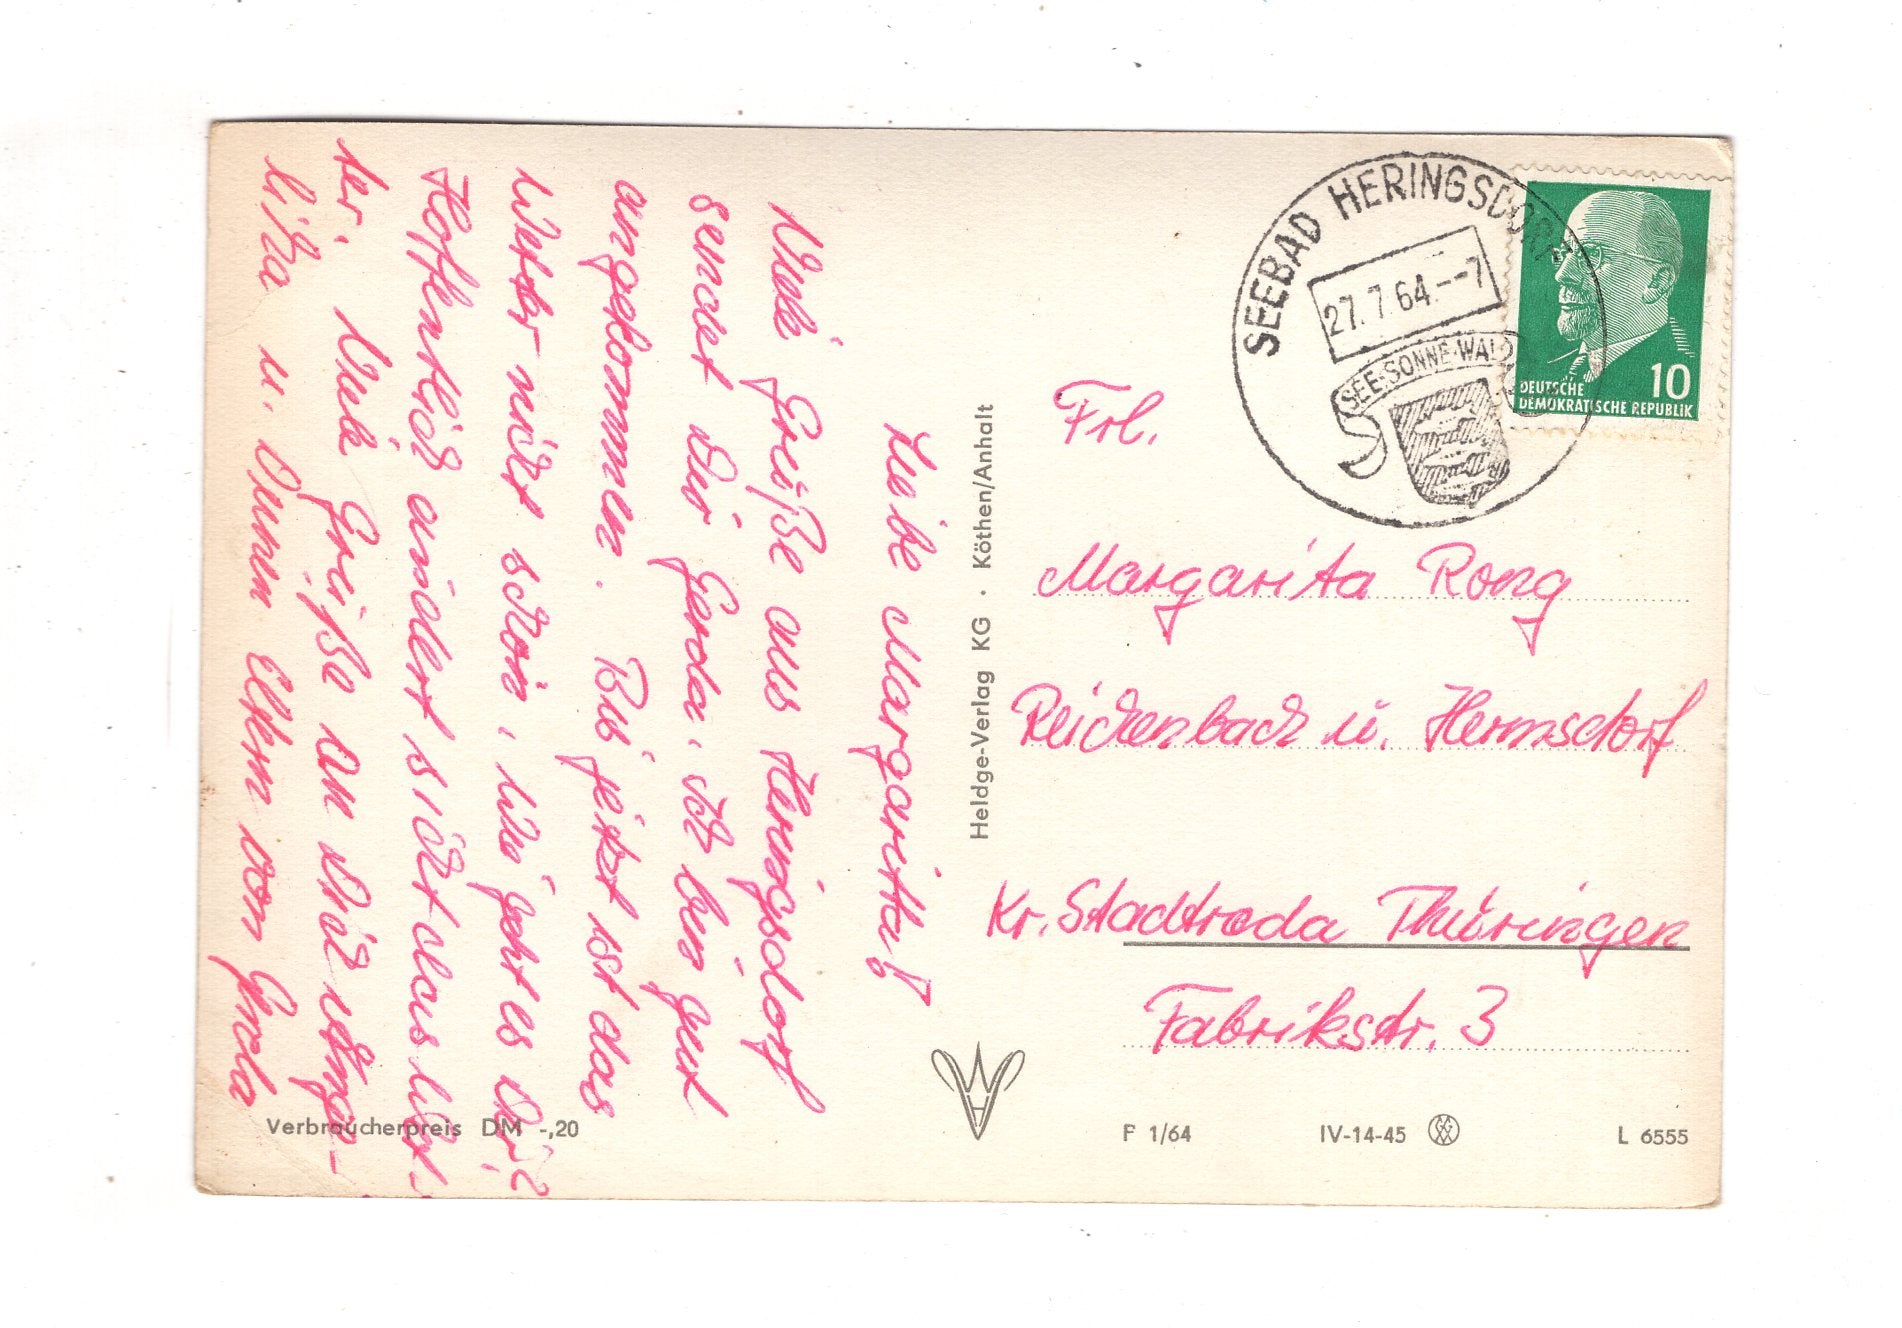 Liebe Margarita!
Viele Grüße aus Heringsdorf
sendet Dir Gerda. Ich bin gut
angekommen. Bis jetzt ist das
Wetter nicht schön. Wie geht es Dir?
Hoffentlich ändert sich das Wet-
ter. Viele Grüße an Dich
u. Deinen Eltern von
Heldge-Verlag KG · Köthen/Anhalt
SEEBAD HERINGSDORF
27.7.64.--7
SEE·SONNE·WALD
DEUTSCHE
DEMOKRATISCHE REPUBLIK
10
Frl.
Margarita Rong
Reichenbach ü. Hermsdorf
Kr. Stadtroda Thüringen
Fabrikstr. 3
Verbraucherpreis DM -,20
F 1/64
IV-14-45
L 6555